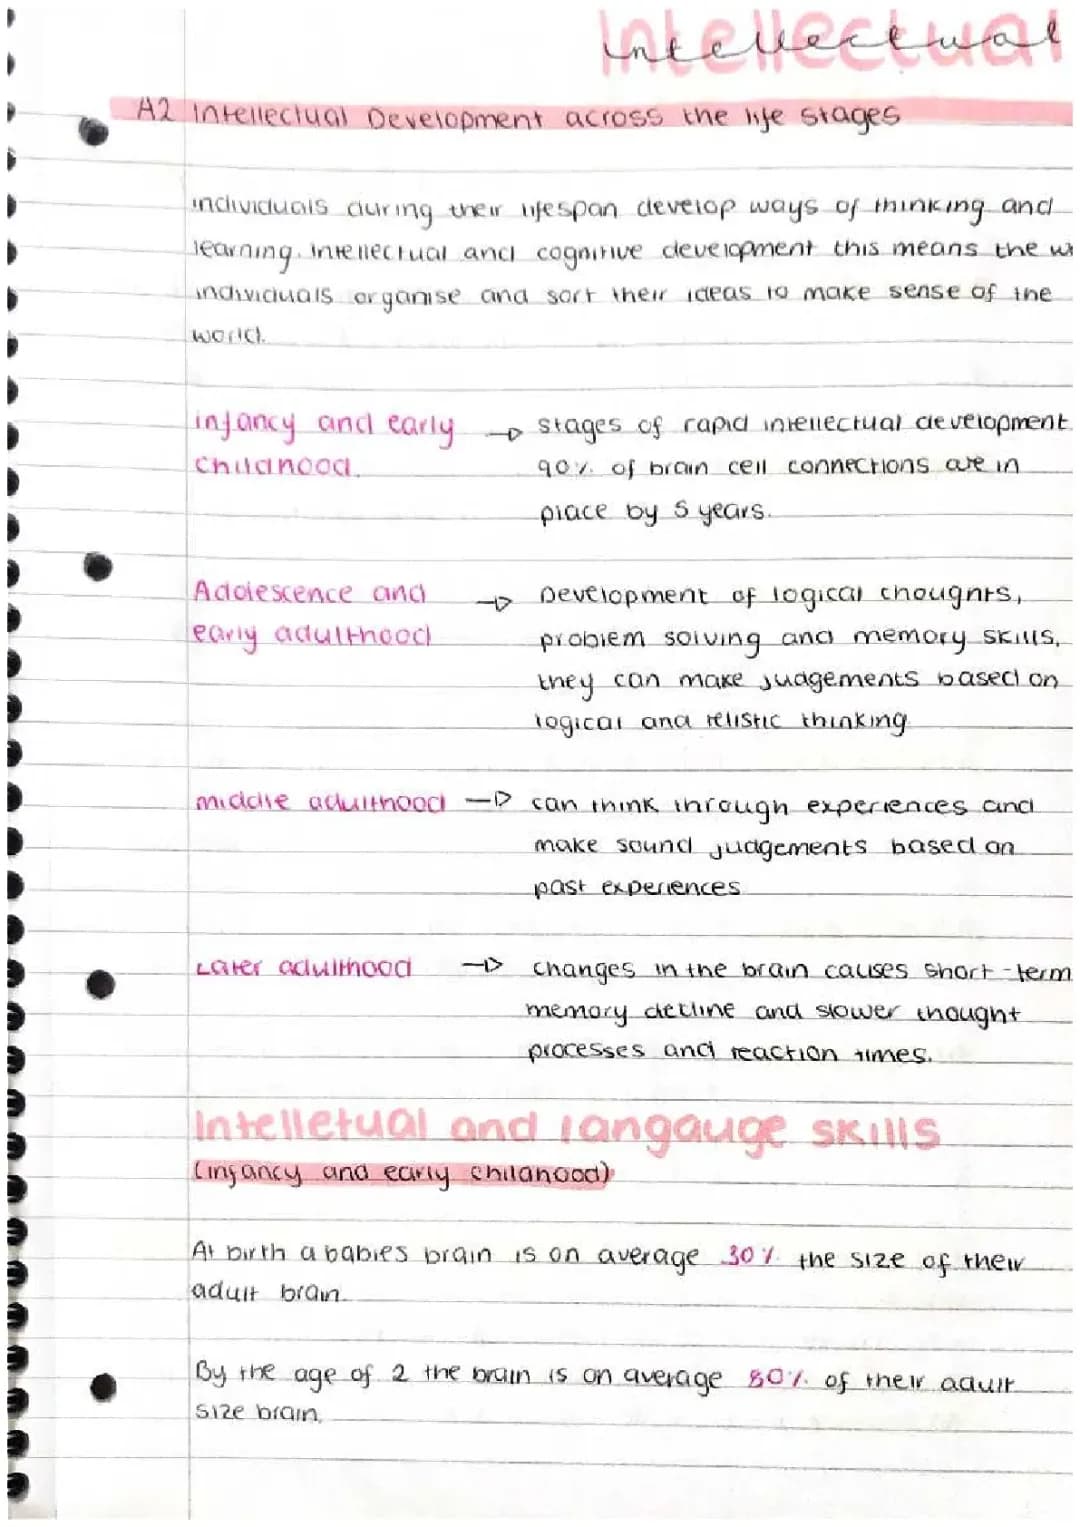 Intellectual
A2 Intellectual Development across the life stages
individuals during their lifespan develop ways of thinking and
learning. intellectual and cognitive development this means the
individuals organise and sort their ideas to make sense of the
world.
infancy and early → stages of rapid intellectual development
childhood. 90% of brain cell connections are in
place by 5 years.
Adolescence and → Development of logical thoughts,
early adulthood problem solving and memory skills,
they can make judgements based on
logical and relistic thinking
middle adulthood → can think through experiences and
make sound judgements based on
past experiences
Later adulthood → changes in the brain causes short-term
memory decline and slower thought
processes and reaction times.
Intelletual and langauge skills
(infancy and early childhood)
At birth a babies brain is on average 30% the size of their
adult brain.
By the age of 2 the brain is on average 80% of their adult
size brain.